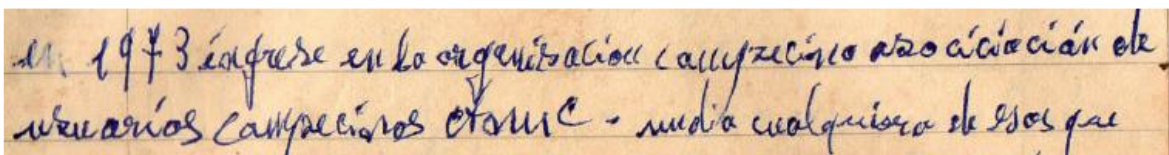 en 1973 ingrese en la organisacion campecino asociciación de
usuarios campecinos anuc. undia cualquiera de esos que